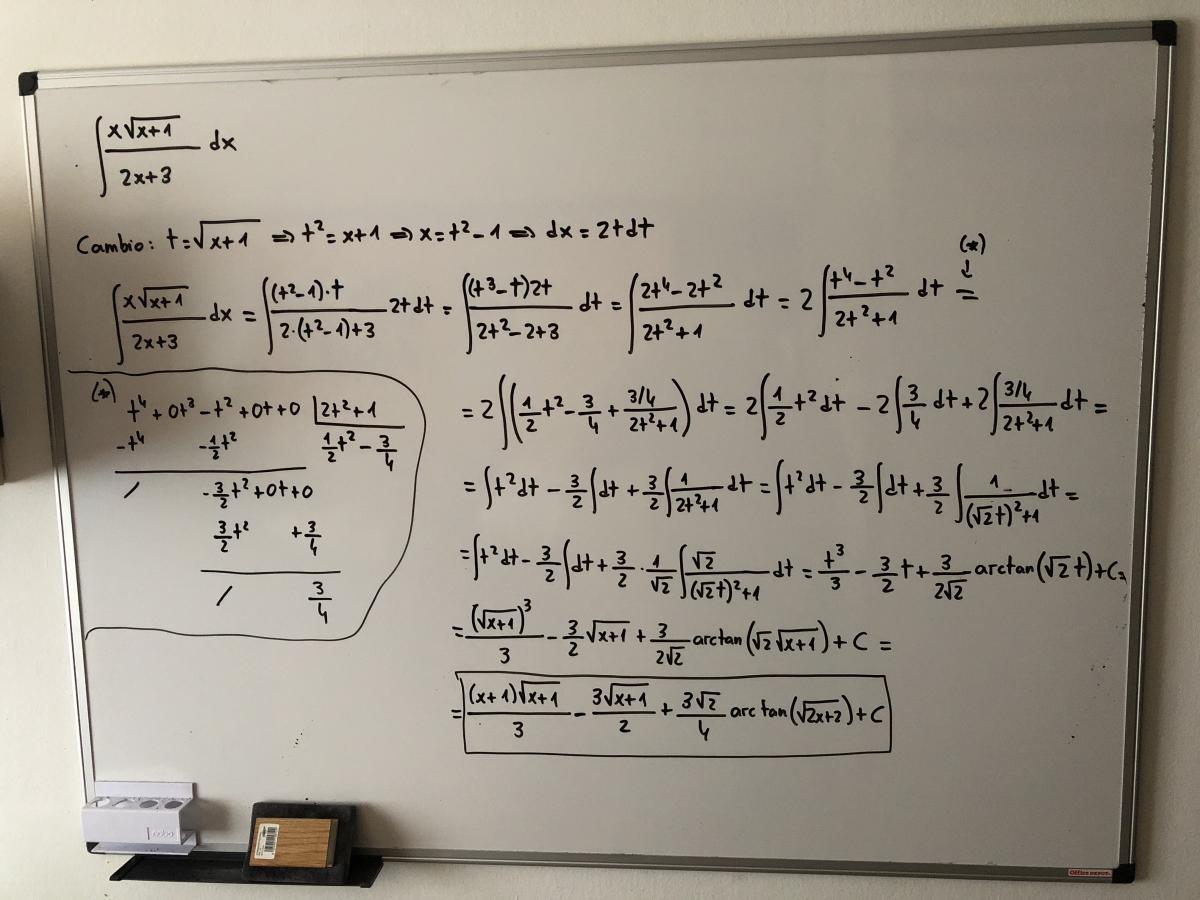 ∫ x√(x+1) / (2x+3) dx
Cambio: t = √(x+1) ⇒ t² = x+1 ⇒ x = t² - 1 ⇒ dx = 2t dt
(*)
↓
∫ x√(x+1) / (2x+3) dx = ∫ (t²-1)·t / (2·(t²-1)+3) 2t dt = ∫ (t³-t)2t / (2t²-2+3) dt = ∫ (2t⁴-2t²) / (2t²+1) dt = 2 ∫ (t⁴-t²) / (2t²+1) dt =
(*)
t⁴ + 0t³ - t² + 0t + 0 | 2t²+1
-t⁴ -1/2 t² 1/2 t² - 3/4
/ -3/2 t² + 0t + 0
3/2 t² + 3/4
/ 3/4
= 2 ∫ (1/2 t² - 3/4 + (3/4)/(2t²+1)) dt = 2 ∫ 1/2 t² dt - 2 ∫ 3/4 dt + 2 ∫ (3/4)/(2t²+1) dt =
= ∫ t² dt - 3/2 ∫ dt + 3/2 ∫ 1/(2t²+1) dt = ∫ t² dt - 3/2 ∫ dt + 3/2 ∫ 1/((√2t)²+1) dt =
= ∫ t² dt - 3/2 ∫ dt + 3/2 · 1/√2 ∫ √2/((√2t)²+1) dt = t³/3 - 3/2 t + 3/(2√2) arctan(√2 t) + C =
= (√(x+1))³/3 - 3/2 √(x+1) + 3/(2√2) arctan(√2 √(x+1)) + C =
= (x+1)√(x+1) / 3 - 3√(x+1) / 2 + 3√2/4 arctan(√(2x+2)) + C
Office DEPOT